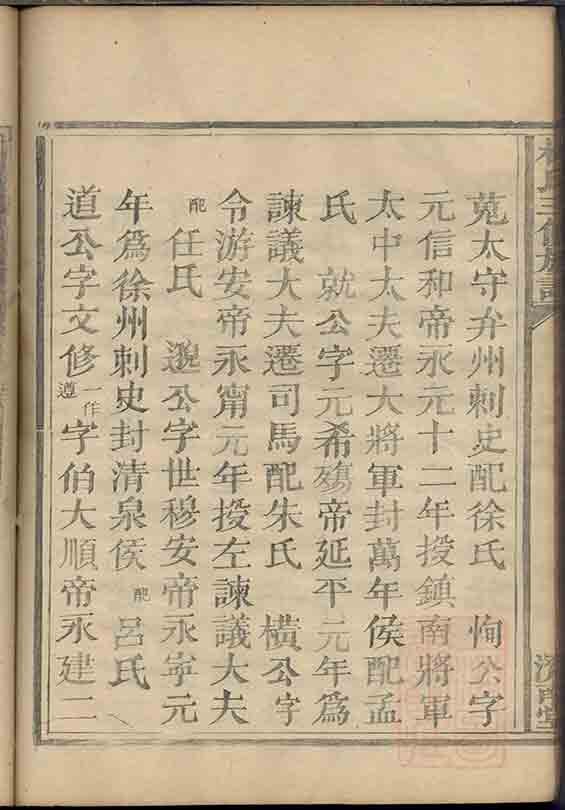 萈太守弁州刺史配徐氏　恂公字
元信和帝永元十二年授鎮南將軍
太中太夫遷大將軍封萬年侯配孟
氏　就公字元希殤帝延平元年爲
諫議大夫遷司馬配朱氏　橫公字
令游安帝永甯元年授左諫議大夫
配任氏　邈公字世穆安帝永寜元
年爲徐州刺史封清泉侯配呂氏
道公字文修一作遵字伯大順帝永建二